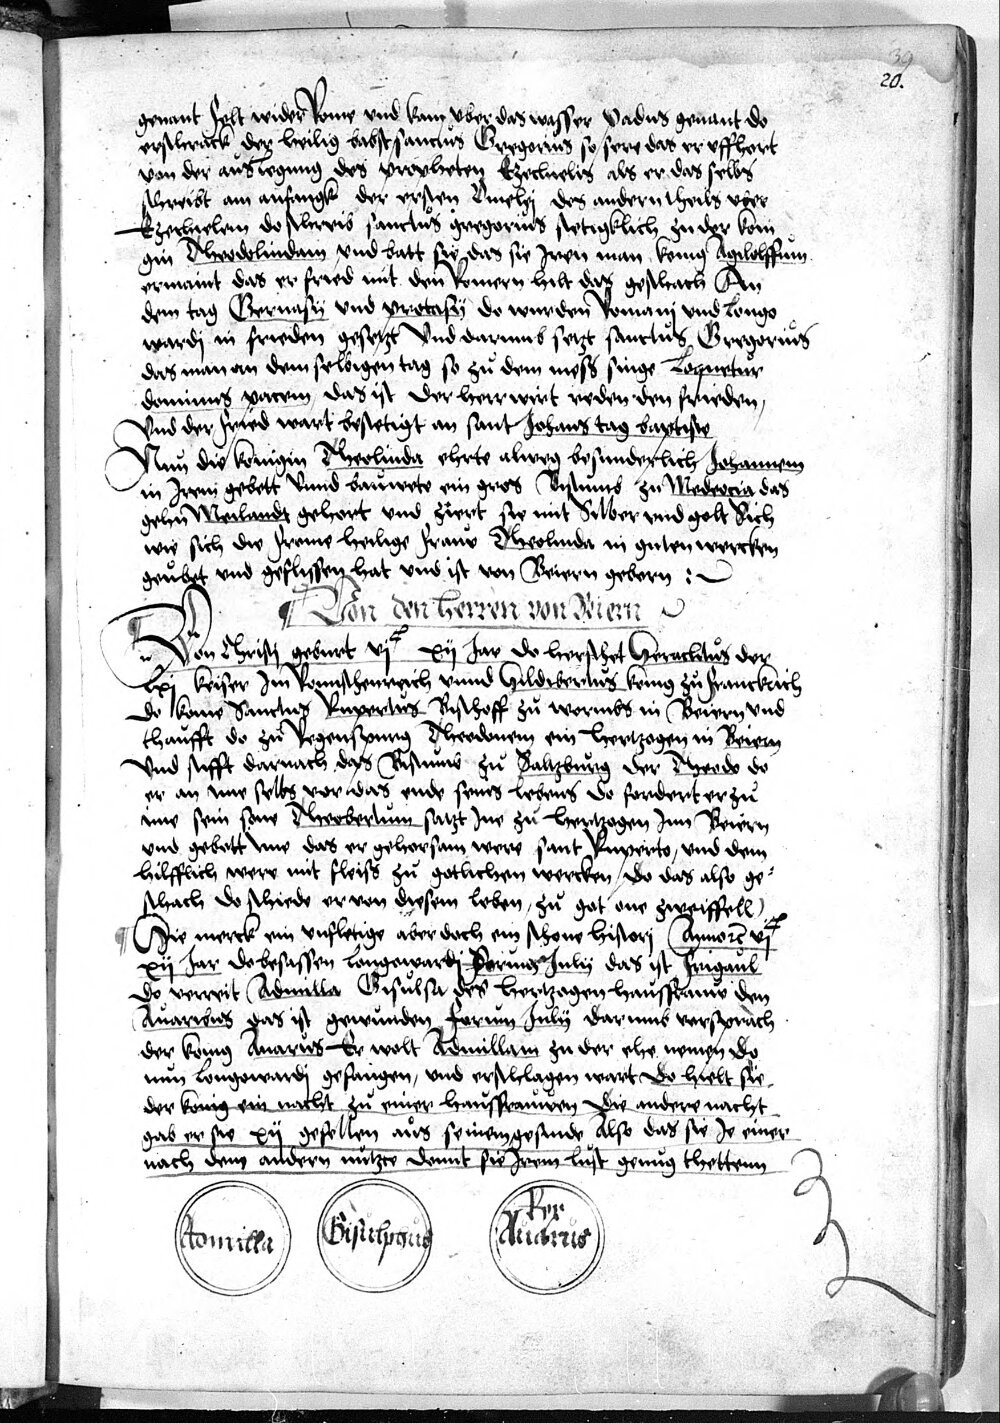 39
20.
genant felt wider Rome vnd kam vber das wasser Padus genant do
erschrack der heilig babst sanctus Gregorius so sere das er vffhort
von der auslegung des propheten Ezechielis als er das selbs
schreibt am anfangk der ersten Omelij des andern theils vber
Ezechielem do schreib sanctus gregorius stetigklich zu der koni
gin Theodolindam vnd batt sie das sie Iren man konig Agilolffum
ermant das er fried mit den Romern hilt das geschach An
dem tag Geruasij vnd protasij do wurden Romani vnd Longo
wardj in frieden gesetzt Vnd darumb setzt sanctus Gregorius
das man an dem selbigen tag so zu dem mess singe Loquetur
dominus pacem das ist der herr wirt reden den frieden,
Vnd der fried wart bestetigt an sant Johans tag baptiste
Nun die konigin Theolinda ehrte alweg besunderlich Johannem
in Irem gebett Vnnd bauwete ein gros Bistumb zu Modoecia das
gehn Meilandt gehort vnd ziert sie mit Silber vnd golt Sich
wie sich die frome heilige frauw Theolinda in guten wercken
geubet vnd geflissen hat vnd ist von Beiern geborn :~
Von den herren von Beiern
Von Christj geburt vjC xij Jar do herschet Heraclitus der
lxj keiser Im Romischenreich vnnd Hildibertus konig zu franckrich
do kome Sanctus Rupertus Bischoff zu wormbs in Beiern vnd
thaufft do zu Regenspurg Theodonem ein hertzogen in Beiern
Vnd stifft darnach das Bistumb zu Saltzburg der Theodo do
er an ime selbs vor das ende seines lebens do fordert er zu
ime sein sone Theobertum satzt Ine zu hertzogen Inn Beiern
vnd gebott Ime das er gehorsam were sant Ruperto, vnd dem
hilfflich were mit fleiss zu gotlichen wercken, Do das also ge
schach do schiede er von diesem leben, zu got one zweiffell,
Hie merck ein vnfletige aber doch ein schone histori Anno etc vjC
xij Jar do besassen Longowardj Forum Julij das ist frigaul
do verreit Admilla Gisulfa des hertzogen haussfrauw den
Auaribus das ist gewunden forum Julij darumb versprach
der konig Auarus Er wolt Admillam zu der ehe nemen Do
nun Longowardj gefangen, vnd erschlagen wart Do hielt sie
der konig ein nacht zu einer haussfrauwen die andere nacht
gab er sie xij gesellen aus seinem gesinde Also das sie Ie einer
nach dem andern nutzte damit sie Irem lust genug thettenn
Romilla
Gisulphus
Rex
Auarus